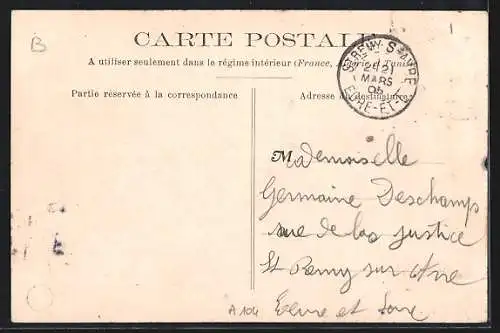 B
CARTE POSTALE
A utiliser seulement dans le régime intérieur (France, Algérie et Tunisie
Partie réservée à la correspondance
Adresse du destinataire
ST REMY-S-AVRE
21
MARS
05
EURE-ET-L
Mademoiselle
Germaine Deschamps
rue de la justice
St Remy sur Avre
A 104 Eure et Loire